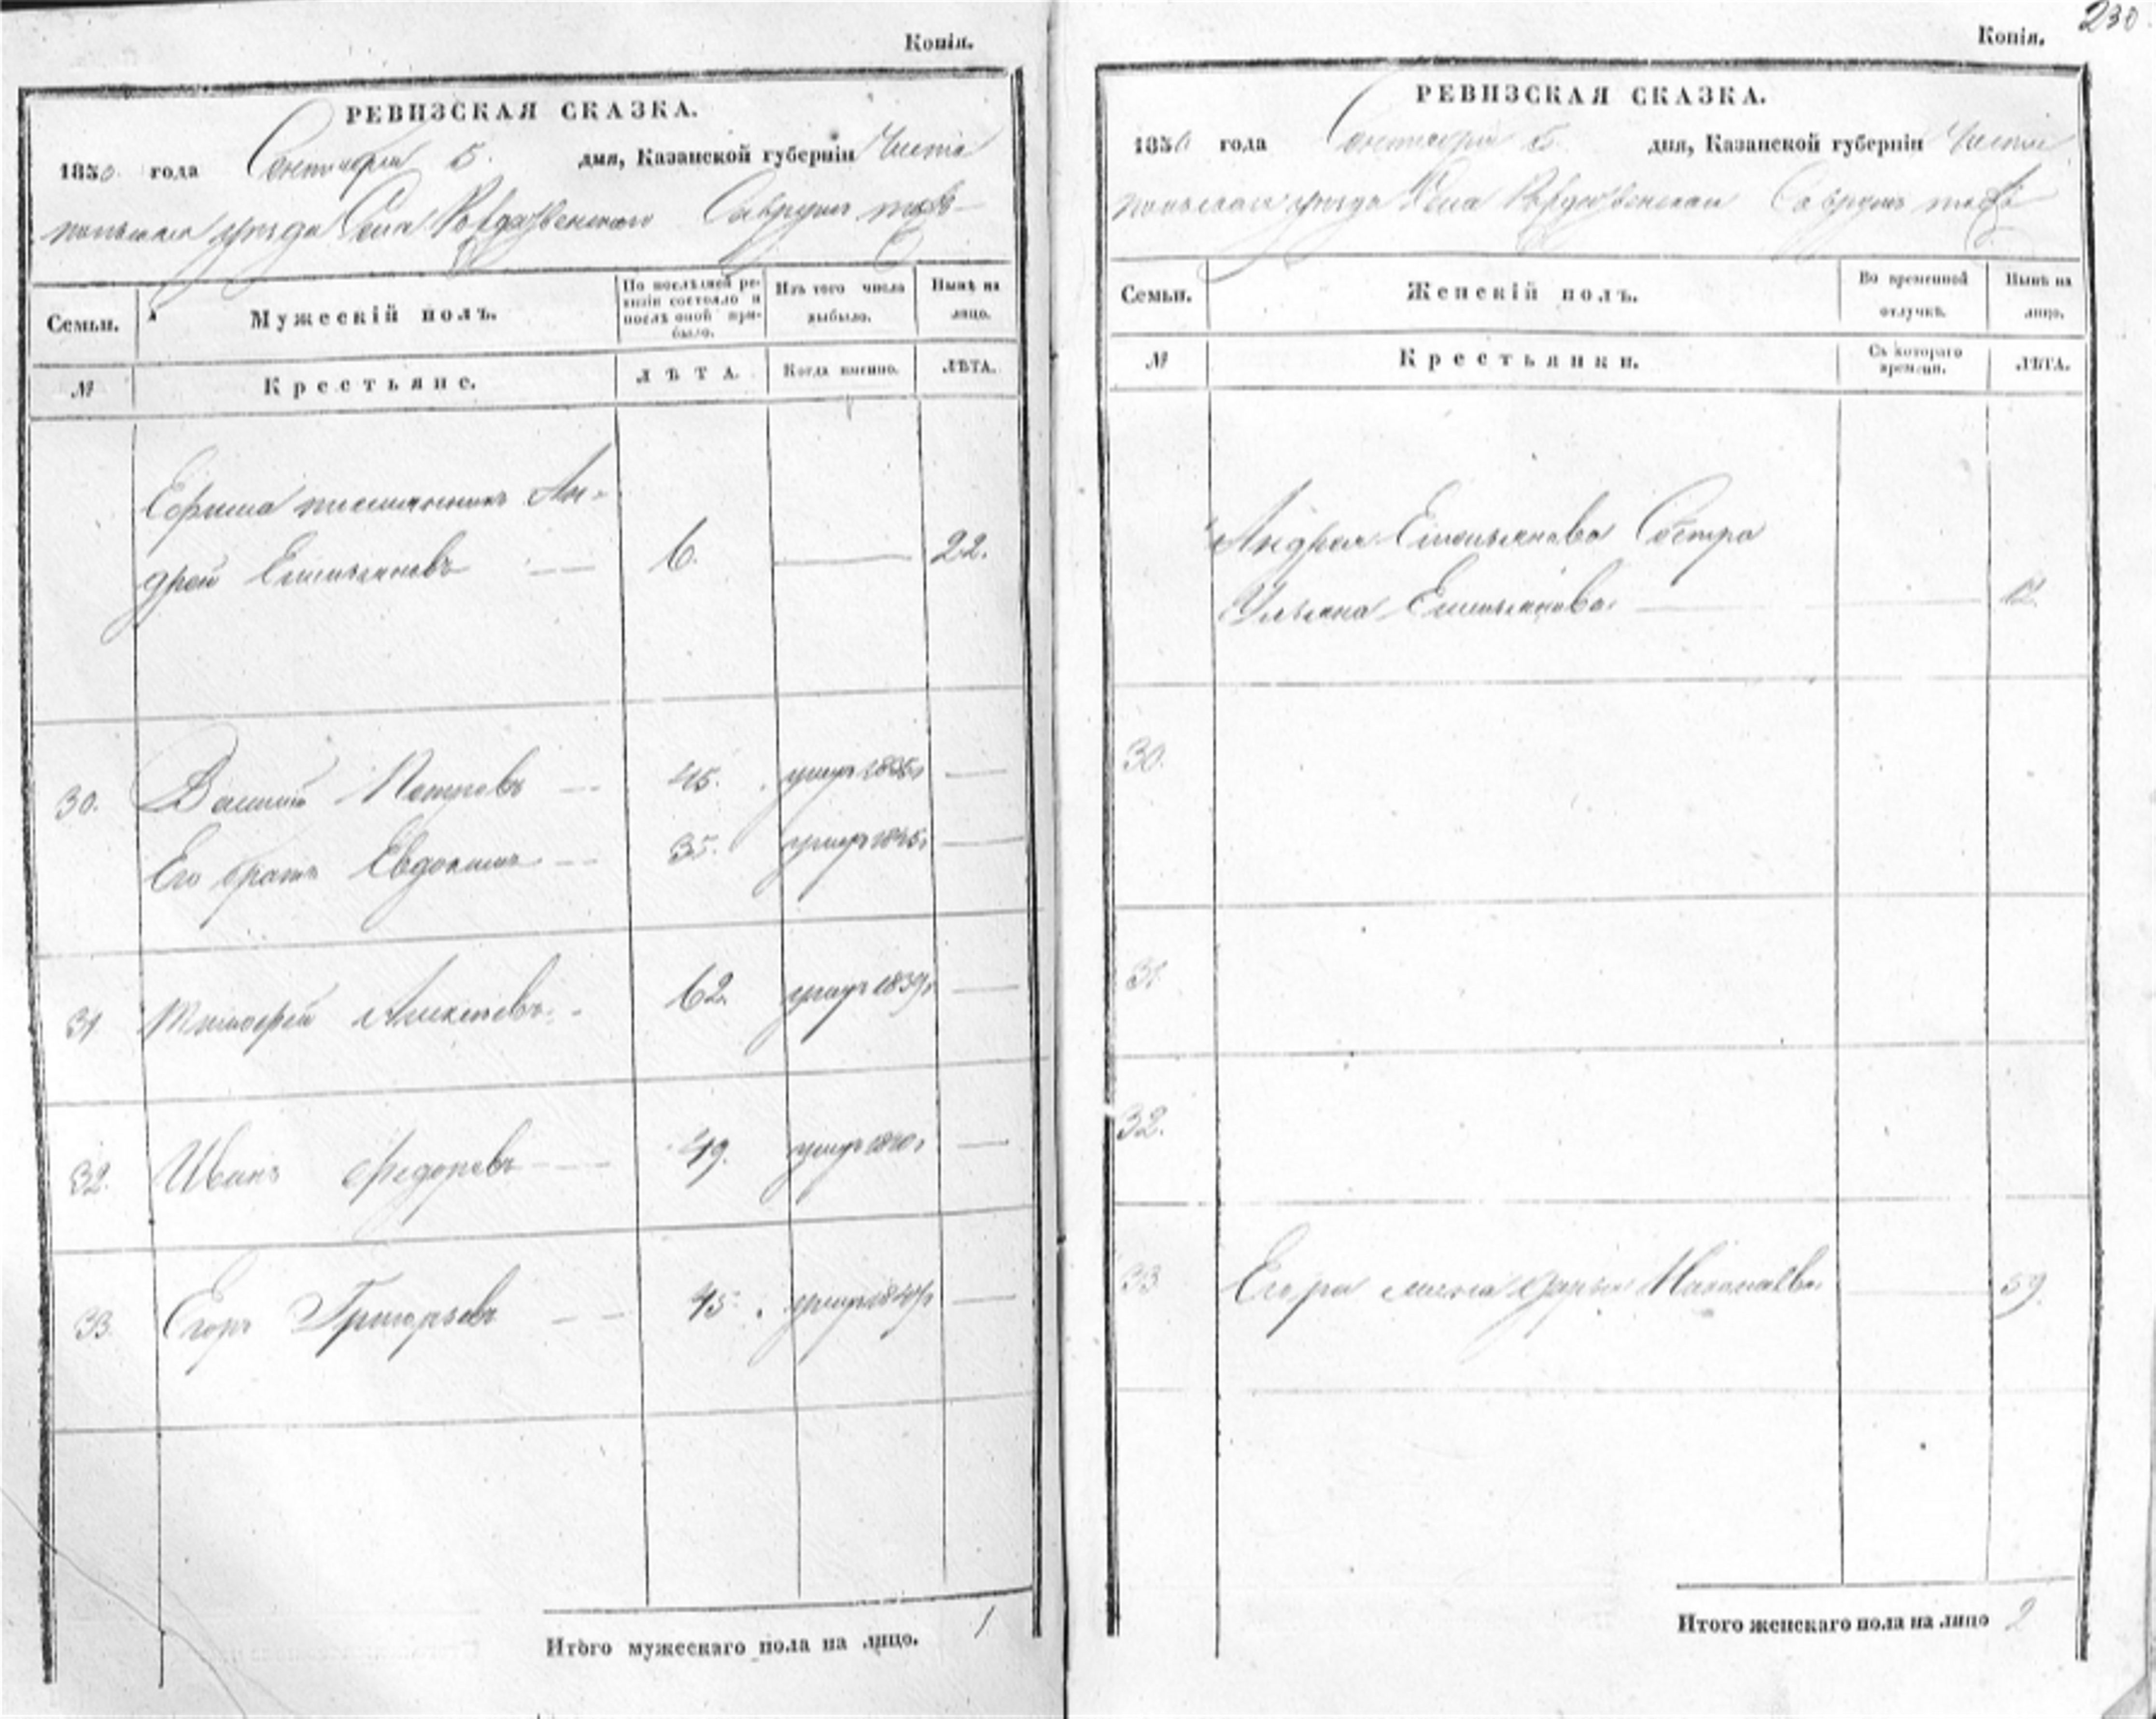 230
Копія.
РЕВИЗСКАЯ СКАЗКА.
1850 года Сентября 5. дня, Казанской губерніи Чисто
польскаго уѣзда Села Рождественскаго Саврушъ тожъ
Семьи.
Мужескій полъ.
По послѣдней ре-
визіи состояло и
послѣ оной при-
было.
Изъ того числа
выбыло.
Нынѣ на
лицо.
№
Крестьяне.
ЛѢТА.
Когда именно.
ЛѢТА.
Ефима племянникъ Ан-
дрей Емельяновъ 6. 22.
30. Василій Петровъ 45. умеръ
Его братъ Евдокимъ 35. умеръ 1845г
31 Тимофей Алексѣевъ 62. умеръ 1839г
32. Иванъ Федоровъ 49. умеръ 1840г
33. Егоръ Григорьевъ 45. умеръ
Итого мужескаго пола на лицо. 1
Копія.
РЕВИЗСКАЯ СКАЗКА.
1850 года Сентября 5. дня, Казанской губерніи Чисто
польскаго уѣзда Села Рождественскаго Саврушъ тожъ
Семьи.
Женскій полъ.
Во временной
отлучкѣ.
Нынѣ на
лицо.
№
Крестьянки.
Съ котораго
времени.
ЛѢТА.
Андрея Емельянова Сестра
Ульяна Емельянова 12.
30.
31.
32.
33. Егора жена Дарья 59.
Итого женскаго пола на лицо 2